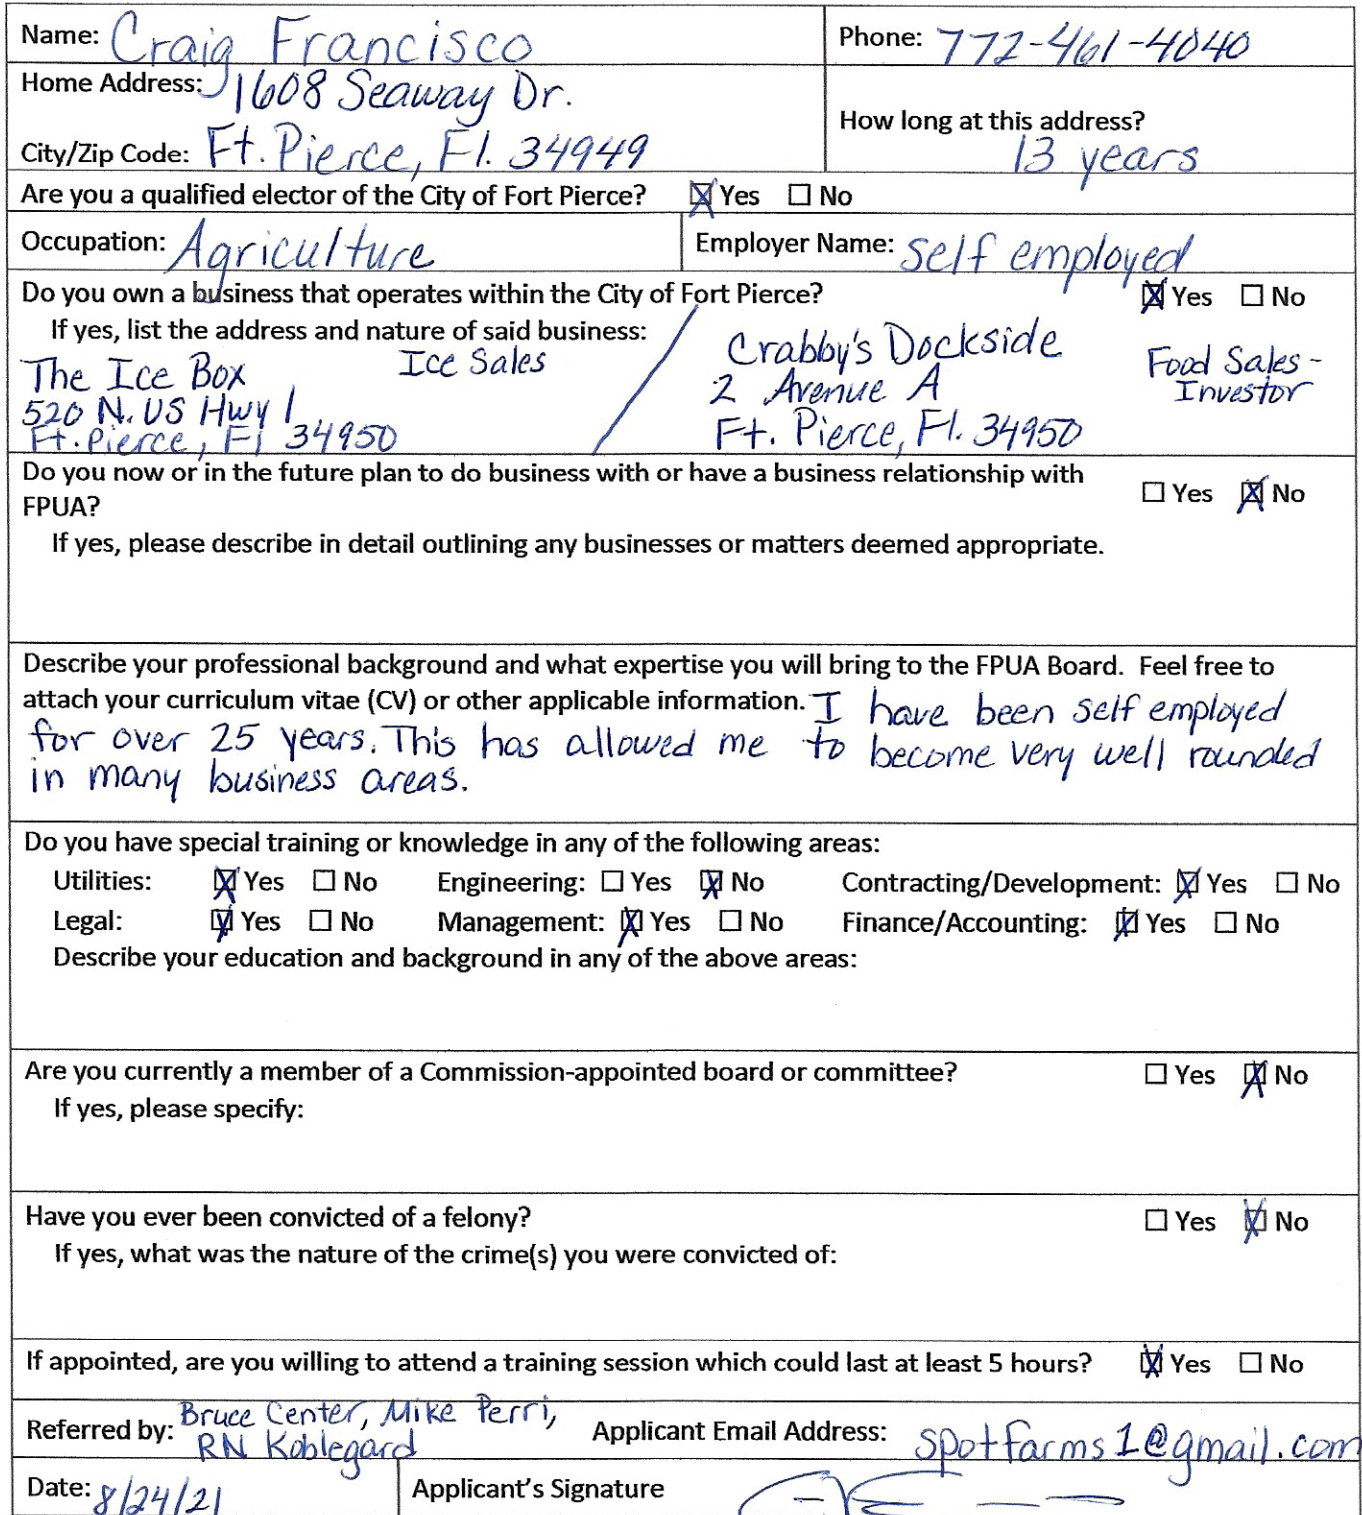 Name: Craig Francisco
Phone: 772-461-4040
Home Address: 1608 Seaway Dr.
City/Zip Code: Ft. Pierce, Fl. 34949
How long at this address?
13 years
Are you a qualified elector of the City of Fort Pierce? ☒ Yes ☐ No
Occupation: Agriculture
Employer Name: self employed
Do you own a business that operates within the City of Fort Pierce? ☒ Yes ☐ No
If yes, list the address and nature of said business:
The Ice Box Ice Sales
520 N. US Hwy 1
Ft. Pierce, Fl 34950
/
Crabby's Dockside
2 Avenue A
Ft. Pierce, Fl. 34950
Food Sales -
Investor
Do you now or in the future plan to do business with or have a business relationship with
FPUA? ☐ Yes ☒ No
If yes, please describe in detail outlining any businesses or matters deemed appropriate.
Describe your professional background and what expertise you will bring to the FPUA Board. Feel free to
attach your curriculum vitae (CV) or other applicable information. I have been self employed
for over 25 years. This has allowed me to become very well rounded
in many business areas.
Do you have special training or knowledge in any of the following areas:
Utilities: ☒ Yes ☐ No Engineering: ☐ Yes ☒ No Contracting/Development: ☒ Yes ☐ No
Legal: ☒ Yes ☐ No Management: ☒ Yes ☐ No Finance/Accounting: ☒ Yes ☐ No
Describe your education and background in any of the above areas:
Are you currently a member of a Commission-appointed board or committee? ☐ Yes ☒ No
If yes, please specify:
Have you ever been convicted of a felony? ☐ Yes ☒ No
If yes, what was the nature of the crime(s) you were convicted of:
If appointed, are you willing to attend a training session which could last at least 5 hours? ☒ Yes ☐ No
Referred by: Bruce Center, Mike Perri,
RN Koblegard
Applicant Email Address: spotfarms1@gmail.com
Date: 8/24/21
Applicant's Signature